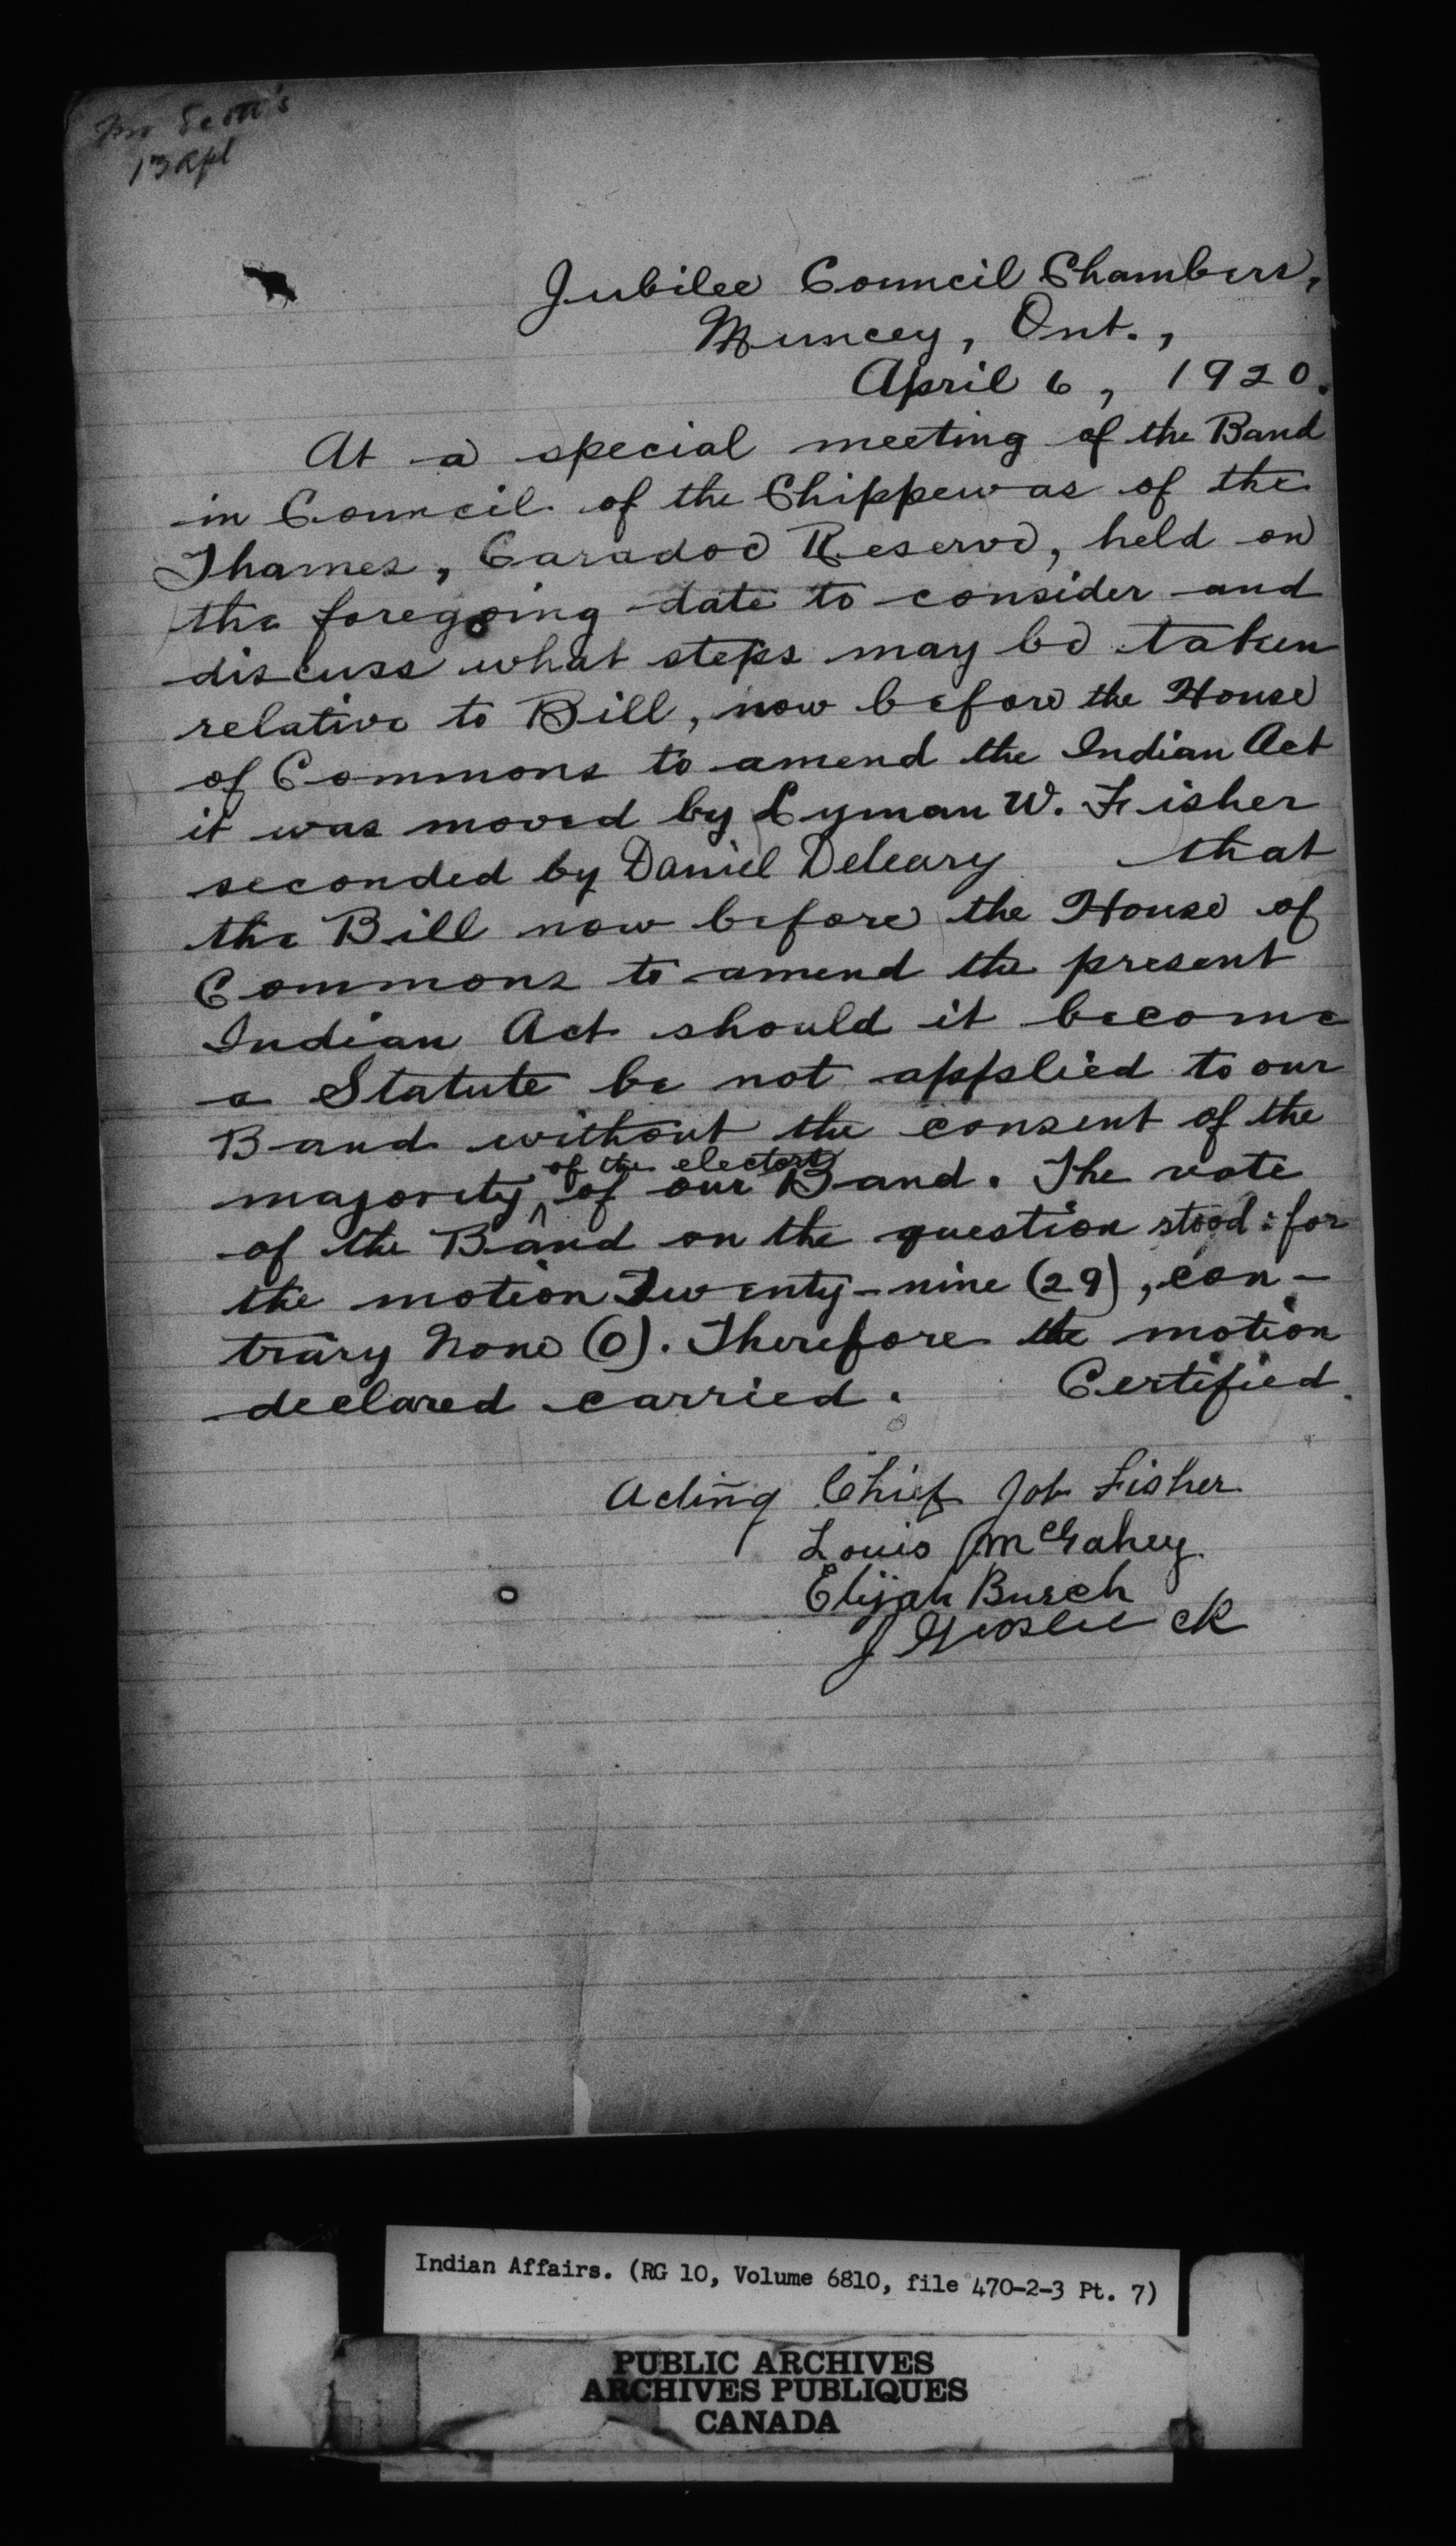 Mr Scott's
13 Apl
Jubilee Council Chambers,
Muncey, Ont.,
April 6, 1920.
At a special meeting of the Band
in Council of the Chippewas of the
Thames, Caradoc Reserve, held on
the foregoing date to consider and
discuss what steps may be taken
relative to Bill, now before the House
of Commons to amend the Indian Act
it was moved by Lyman W. Fisher
seconded by Daniel Deleary that
the Bill now before the House of
Commons to amend the present
Indian Act should it become
a Statute be not applied to our
Band without the consent of the
majority ^of the electors of our Band. The vote
of the Band on the question stood: for
the motion Twenty-nine (29), con-
trary None (0). Therefore the motion
declared carried. Certified.
Acting Chief Job Fisher
Louis McGahey
Elijah Burch
J
Indian Affairs. (RG 10, Volume 6810, file 470-2-3 Pt. 7)
PUBLIC ARCHIVES
ARCHIVES PUBLIQUES
CANADA